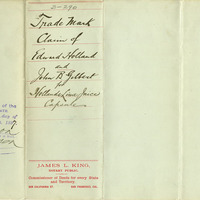 2-296
Trade Mark
Claim of
Edward Holland
and
John B Gilbert
for
Capsules
of the
day of
JAMES L. KING,
NOTARY PUBLIC,
Commissioner of Deeds for every State
and Territory